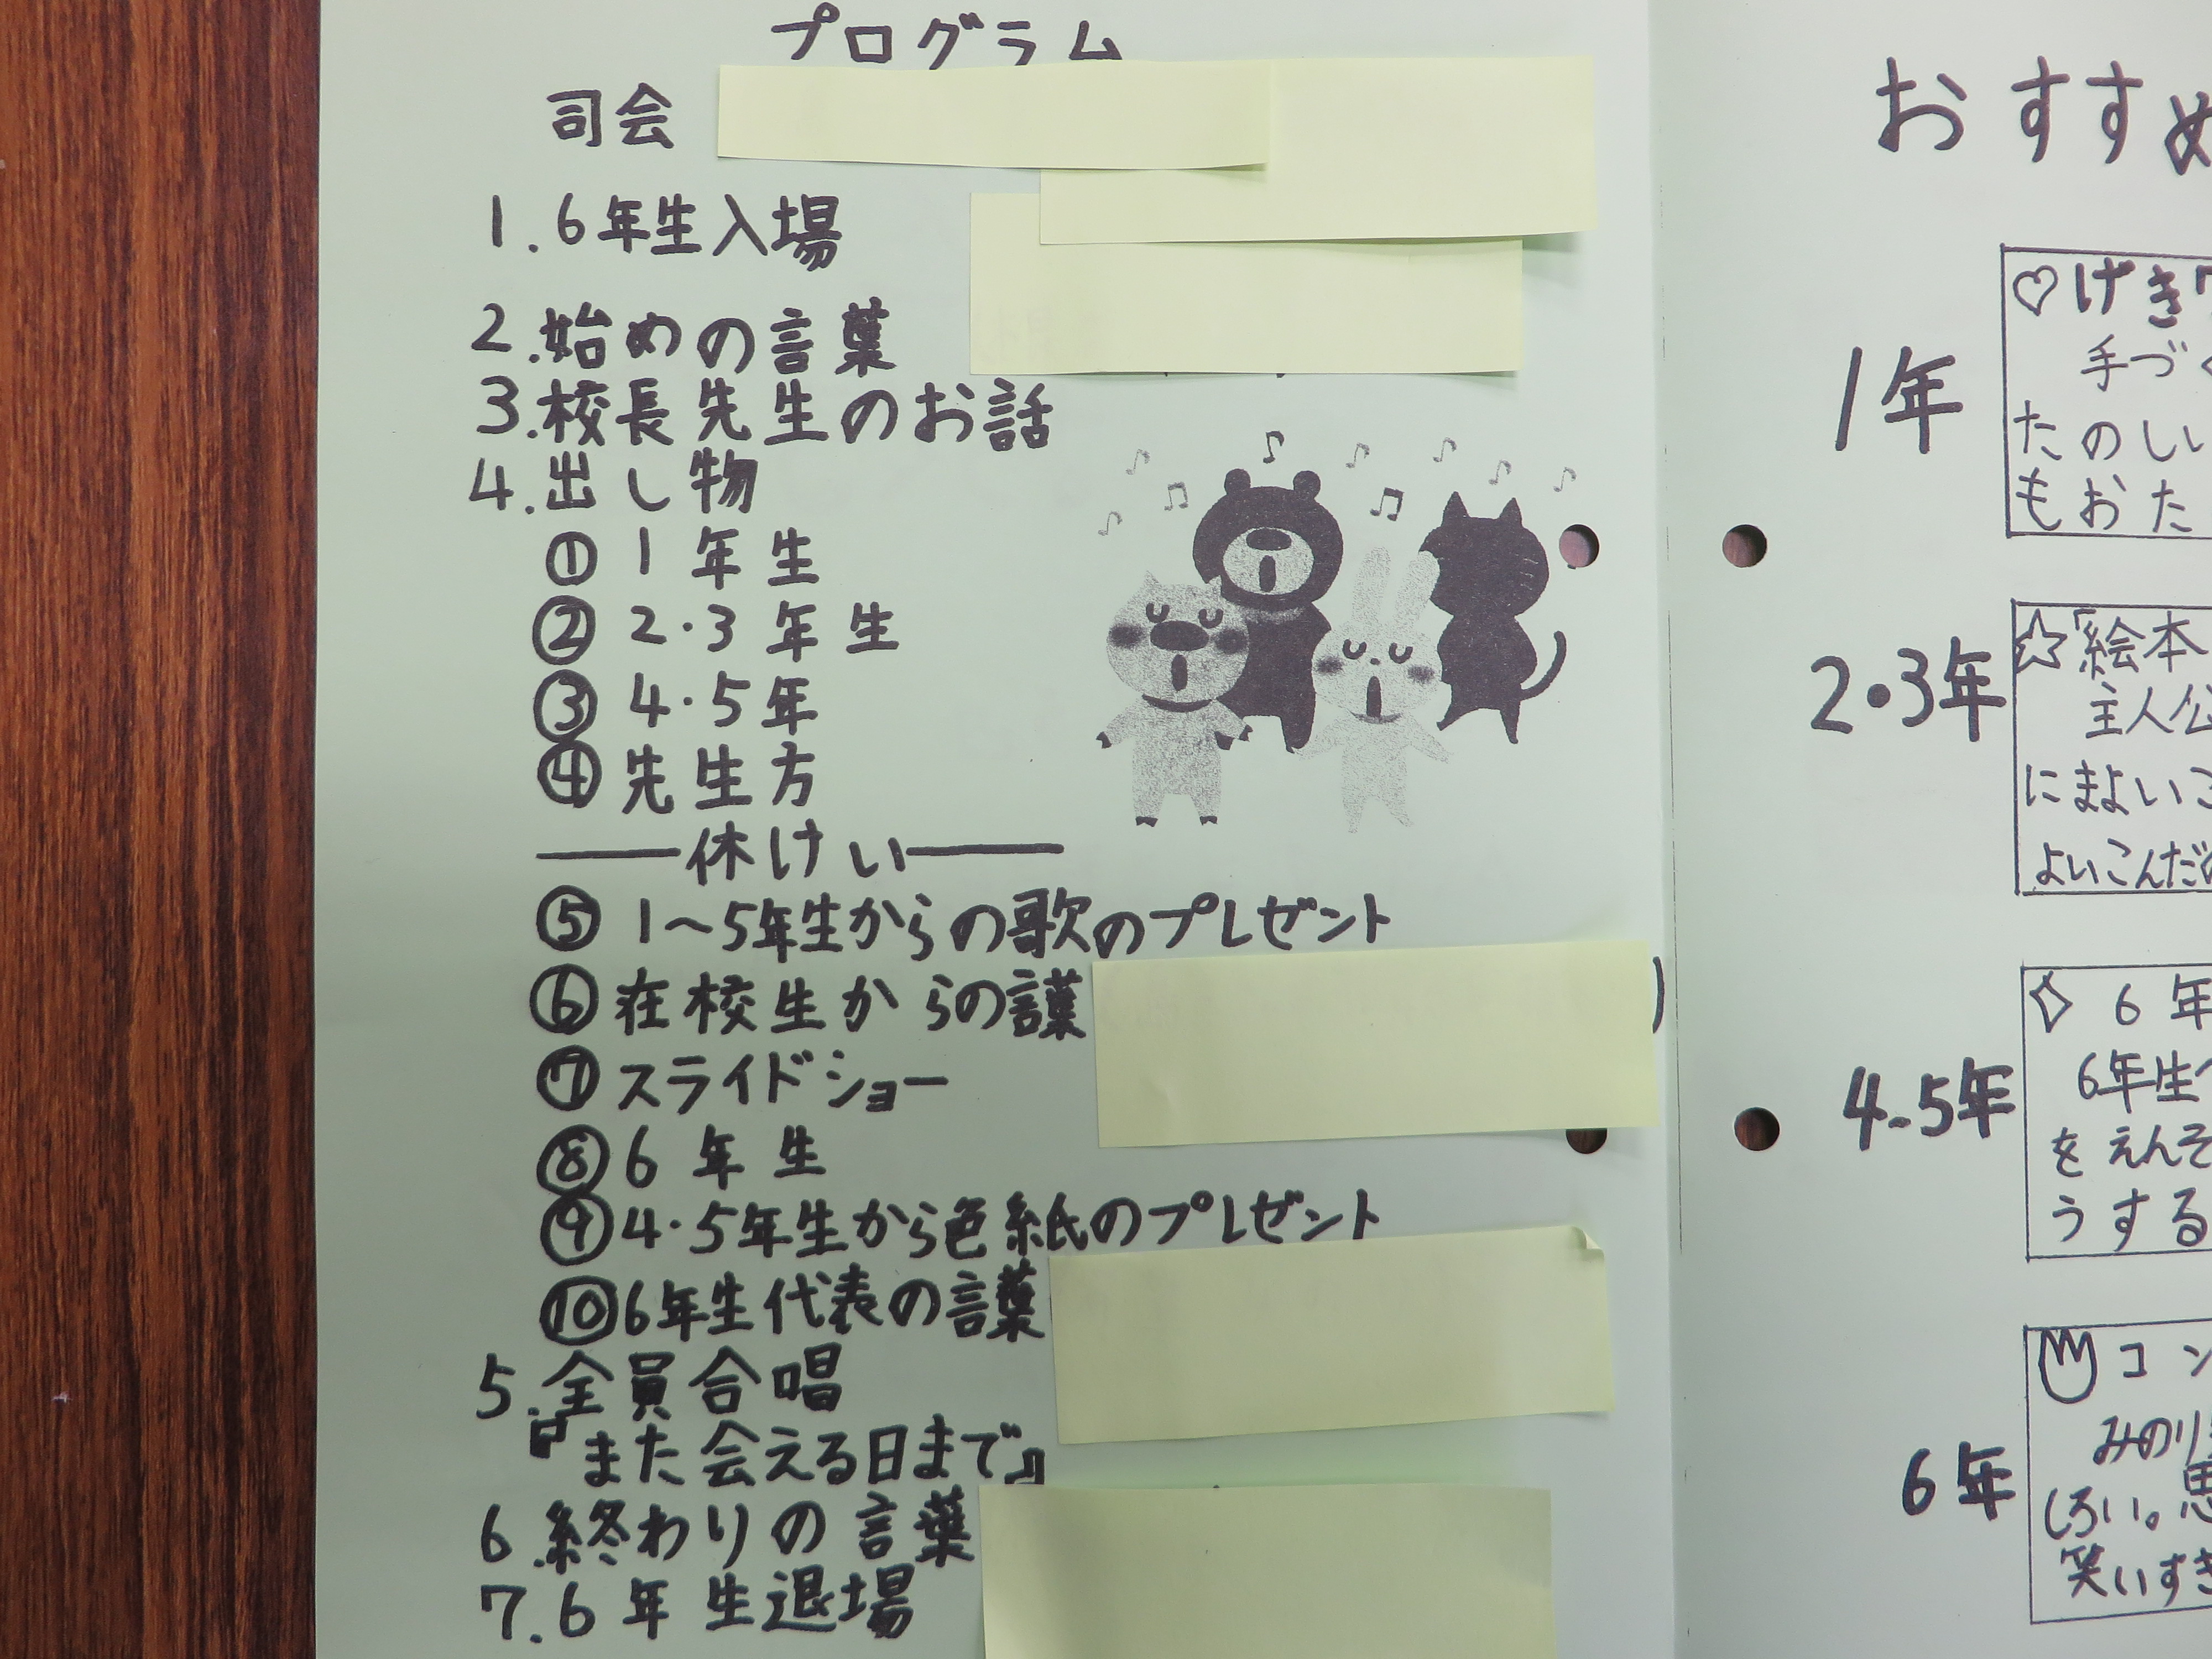 プログラム
司会
1.6年生入場
2.始めの言葉
3.校長先生のお話
4.出し物
① 1年生
② 2・3年生
③ 4・5年
④ 先生方
――休けい――
⑤ 1〜5年生からの歌のプレゼント
⑥ 在校生からの言葉 )
⑦ スライドショー
⑧ 6年生
⑨ 4・5年生から色紙のプレゼント
⑩ 6年生代表の言葉
5.全員合唱
『また会える日まで』
6.終わりの言葉
7.6年生退場
おすすめ
1年
♡げき
手づく
たのしい
もおた
2・3年
☆「絵本
主人公
にまよいこ
よいこんだ
4.5年
◇ 6年
6年生
をえんそ
うする
6年
コン
みのり
しろい。思
笑いすき